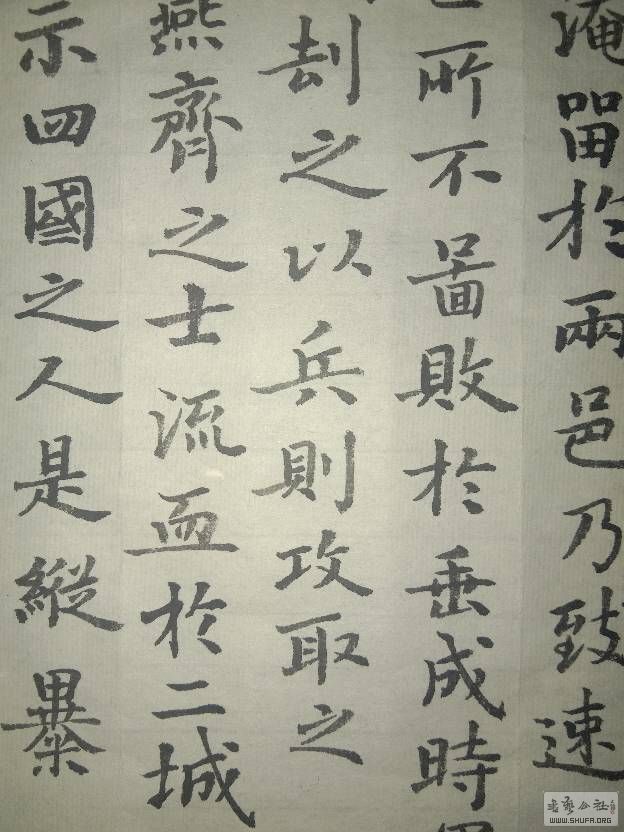 淹留於兩邑乃致速
所不啚敗於垂成時
刦之以兵則攻取之
燕齊之士流血於二城
示四國之人是縱暴
WWW.SHUFA.ORG